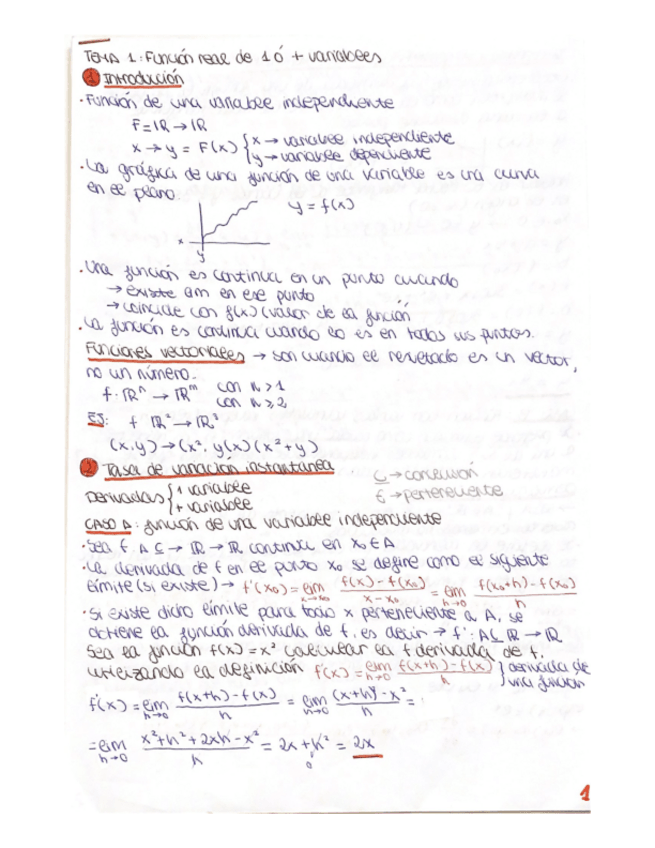 TEMA 1: Función real de 1 ó + variables
1 Introducción
· Función de una variable independiente
F = IR → IR
x → y = F(x) { x → variable independiente
y → variable dependiente
· La gráfica de una función de una variable es una curva
en el plano.
y = f(x)
x
y
· Una función es continua en un punto cuando
→ existe lim en ese punto
→ coincide con f(x) (valor de la función
· La función es continua cuando lo es en todos sus puntos.
Funciones vectoriales → son cuando el resultado es un vector,
no un número.
f: IRⁿ → IRᵐ con n > 1
con n ≥ 2
EJ: f IR² → IR³
(x,y) → (x², y(x)(x²+y)
2 Tasa de variación instantánea
⊆ → conclusión
Derivadas { 1 variable
+ variable
∈ → perteneciente
CASO A: función de una variable independiente
· Sea f, A ⊆ → IR → IR continua en x₀ ∈ A
· La derivada de f en el punto x₀ se define como el siguiente
límite (si existe) → f'(x₀) = lim x→x₀ f(x) - f(x₀) / x - x₀ = lim h→0 f(x₀+h) - f(x₀) / h
· Si existe dicho límite para todo x perteneciente a A, se
obtiene la función derivada de f, es decir → f': A ⊆ IR → IR
Sea la función f(x) = x² calcular la f derivada de f,
utilizando la definición f'(x) = lim h→0 f(x+h) - f(x) / h } derivada de
una función
f'(x) = lim h→0 f(x+h) - f(x) / h = lim h→0 (x+h)² - x² / h =
= lim h→0 x² + h² + 2xh - x² / h = 2x + h² = 2x
0
1